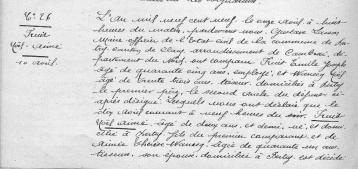 Nº 26
L'an mil neuf cent neuf, le onze avril, à huit
heures du matin, pardevant nous
Maire officier de l'Etat civil de la commune de
canton de arrondissement de Cambrai, dé-
partement du Nord, ont comparu Fruit Emile Joseph
âgé de quarante cinq ans, employé, et
âgé de trente trois ans, domiciliés à
le premier père, le second oncle du défunt ci-
après désigné. Lesquels nous ont déclaré que le
dix avril courant à neuf heures du soir, Fruit
Aimé âgé de deux ans, et demi, né et domi-
cilié à fils du premier comparant et de
âgée de quarante un ans
son épouse, domiciliée à est décédé
Fruit
Aimé
10 avril.